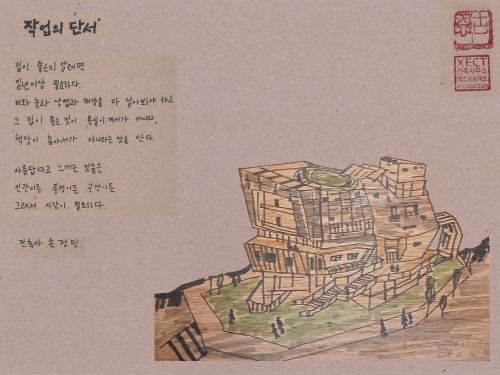 작업의 단서
집이 좋은지 알려면
일년이상 필요하다.
비와 눈과 낙엽과 태양을 다 살아봐야 하고
그 집이 좋은 것이 욕실이 커서가 아니라,
책장이 높아서가 아니라는것을 안다.
아름답다고 느끼는 것들은
인간이든 풍경이든 공간이든
그래서 시간이 필요하다.
건축사 손정민
XECT
건축사무소